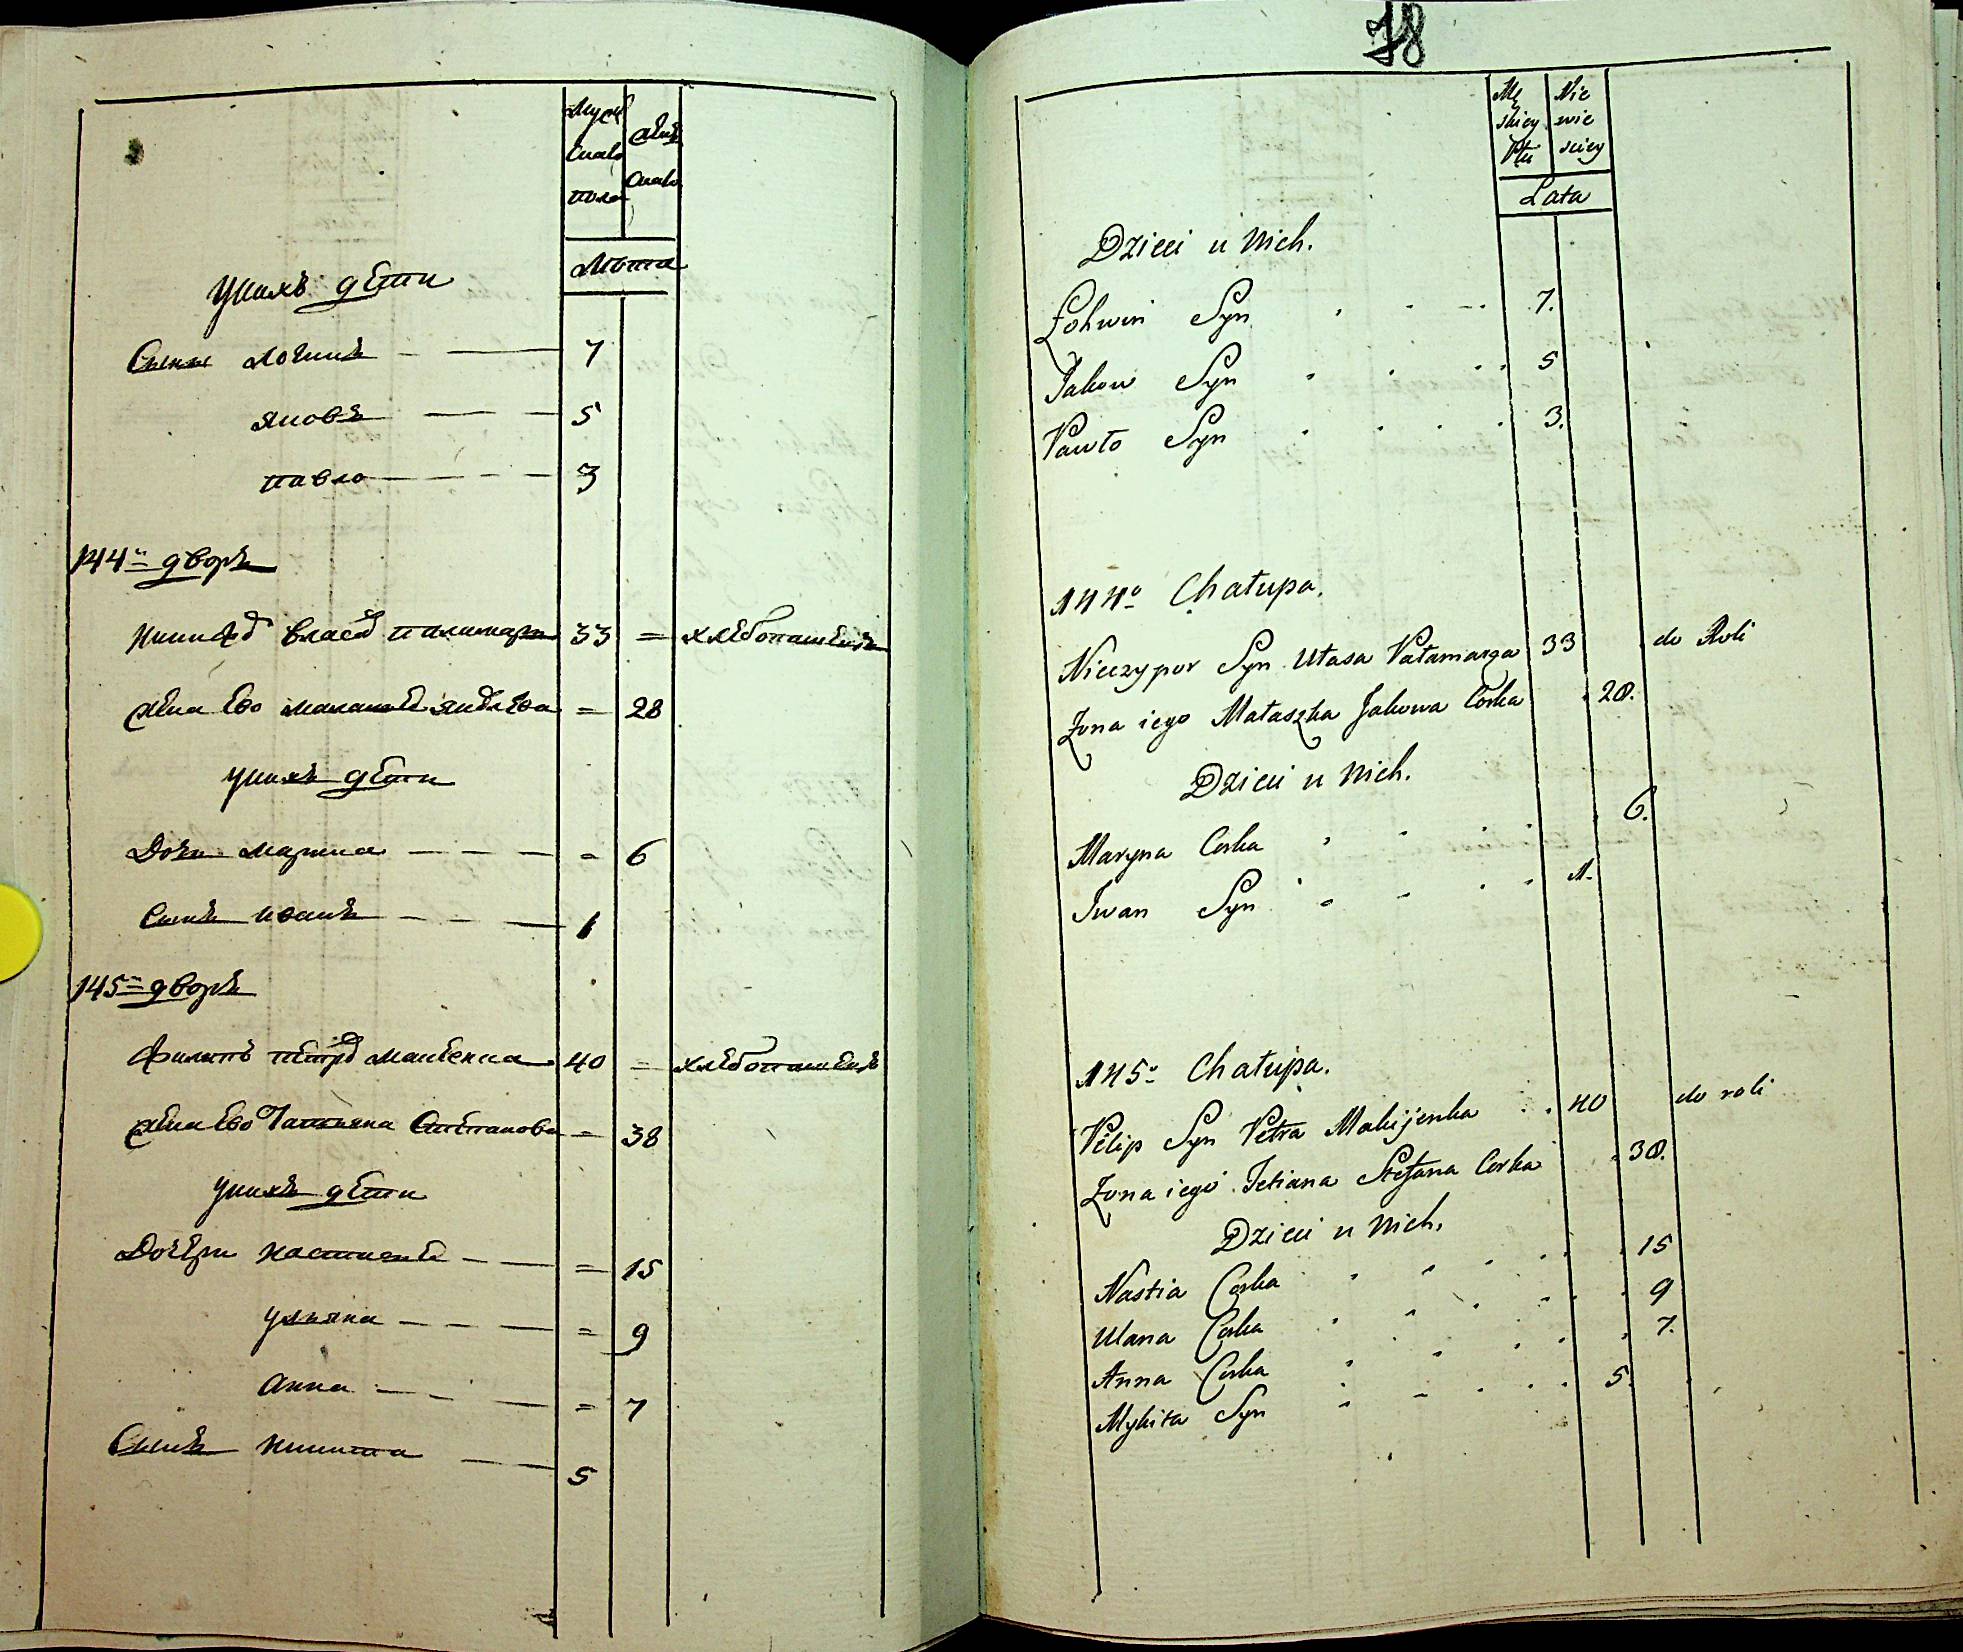 Муже
ска͠го
пола
женс
ска͠го
Лѣта
У нихъ дѣти
Сыны Логвинъ 7
Яковъ 5
Павло 3
144й дворъ
Никифоръ Власовъ Паламаръ 33 = хлѣбопашецъ
Жена Ево Маланья Яковлева = 28
У нихъ дѣти
Дочь Марина = 6
Сынъ Иванъ 1
145й дворъ
Филипъ Петровъ Макѣенка 40 = хлѣбопашецъ
Жена Ево Татьяна Степанова = 38
У нихъ дѣти
Дочери Настасья = 15
Ульяна = 9
Анна = 7
Сынъ Никита 5
78
Mę Nie
skiey wie
Płci sciey
Lata
Dzieci u Nich.
Łohwin Syn 7.
Jakow Syn 5
Pawło Syn 3.
144o Chałupa.
Nieczypor Syn Ułasa Pałamarza 33 do Roli
Zona iego Małaszka Jakowa Corka 28.
Dzieci u Nich.
Maryna Corka 6.
Iwan Syn 1.
145o Chałupa.
Pelip Syn Petra Makijenka 40 do roli
Zona iego Tetiana Stefana Corka 38.
Dzieci u Nich.
Nastia Corka 15
Ulana Corka 9
Anna Corka 7.
Mykita Syn 5.